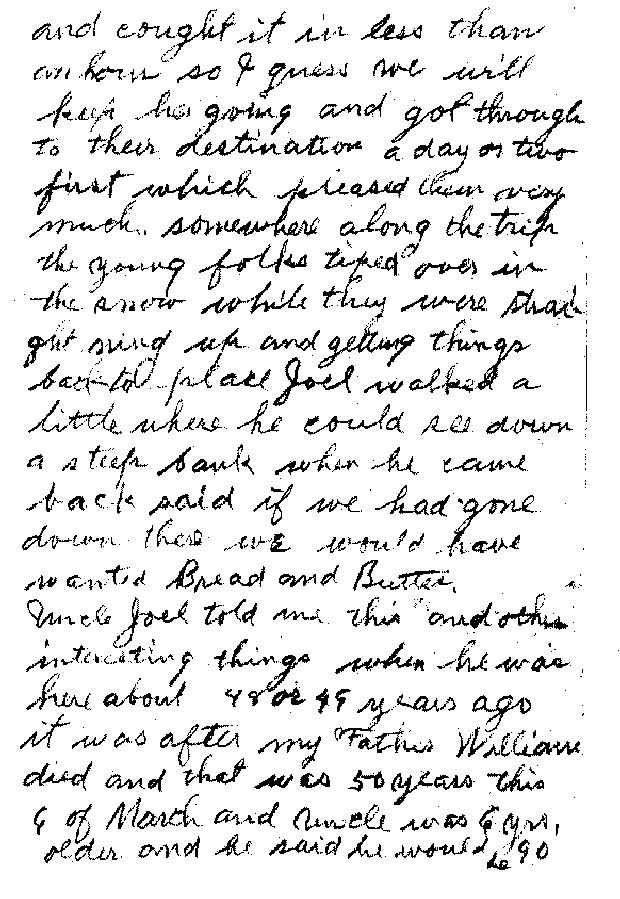 and cought it in less than
an hour so I guess we will
keep he going and got through
to their destination a day or two
first which pleased them very
much. somewhere along the trip
the young folks tiped over in
the snow while they were strai
ght ning up and getting things
back to place Joel walked a
little where he could see down
a steep bank when he came
back said if we had gone
down there we would have
wanted Bread and Butter.
Uncle Joel told me this and other
interesting things when he was
here about 48 or 49 years ago
it was after my Father William
died and that was 50 years this
of March and Uncle was 6 yrs,
older and he said he would be 90